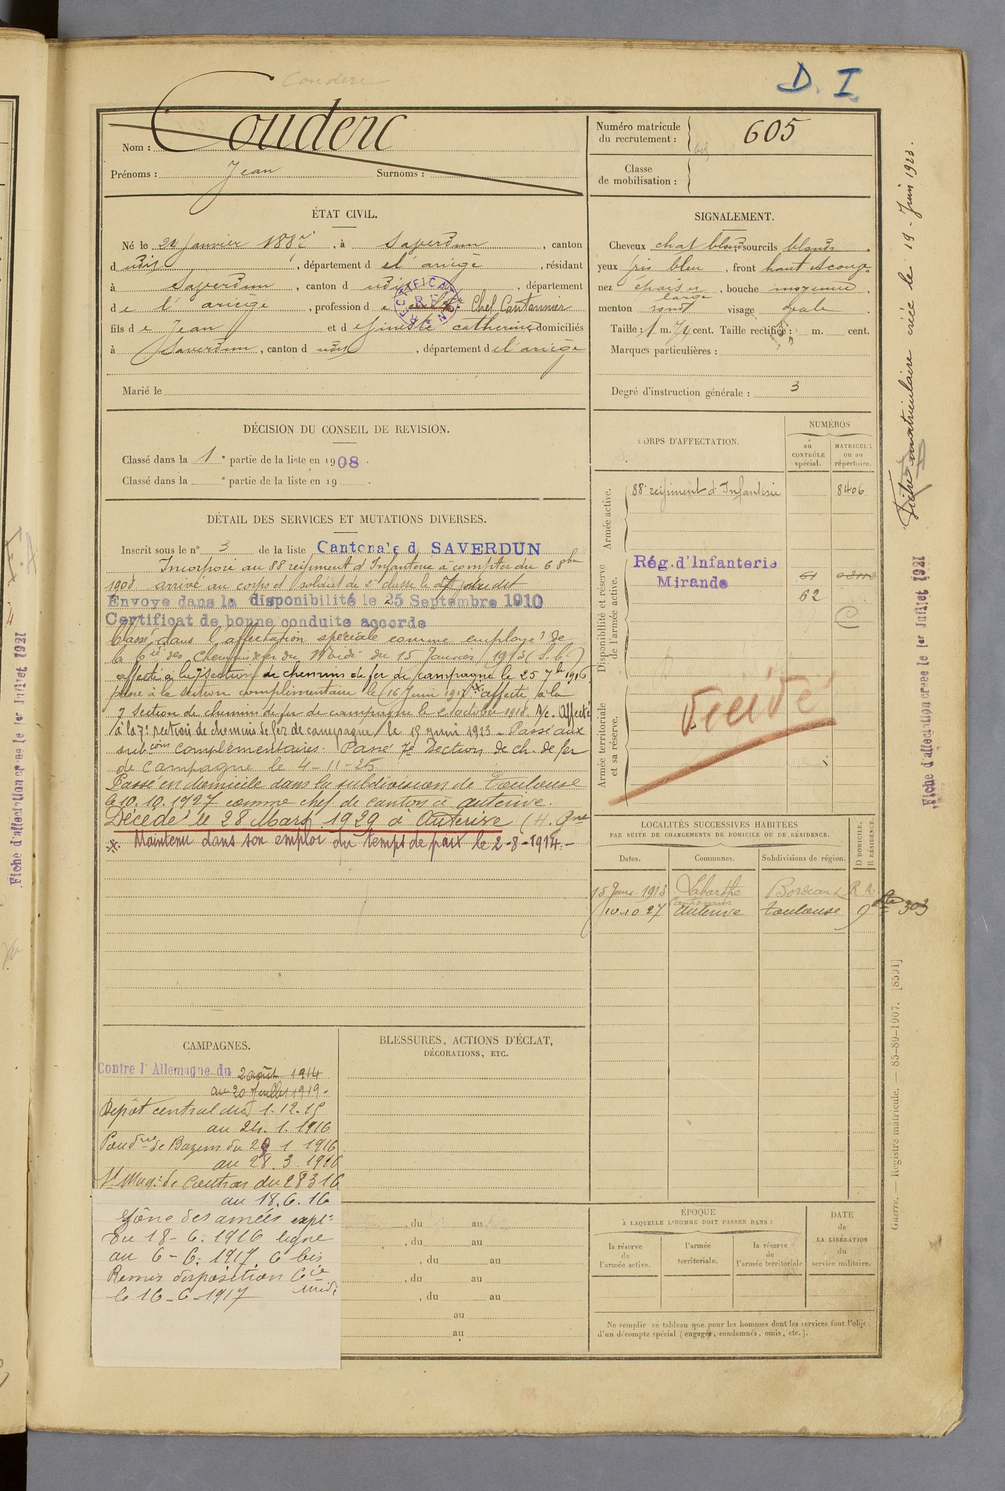 Couderc
D. I
Nom : Couderc
Prénoms : Jean Surnoms :
Numéro matricule du recrutement : 605
Classe de mobilisation :
ÉTAT CIVIL.
Né le 24 Janvier 188 , à Saverdun , canton
d udit , département d e l'ariège , résidant
à Saverdun , canton d udit , département
d e l'ariège , profession d Chef Cantonnier
RECTIFICATION R.F.
fils d e Jean et d e Finiste catherine domiciliés
à Saverdun , canton d udit , département d e l'ariège
Marié le
SIGNALEMENT.
Cheveux chat blond sourcils blonds
yeux gris bleu , front haut
nez épais , bouche moyenne ,
large
menton rond visage ovale
Taille : 1 m. 74 cent. Taille rectifiée : m. cent.
Marques particulières :
Degré d'instruction générale : 3
DÉCISION DU CONSEIL DE REVISION.
Classé dans la 1e partie de la liste en 1908 .
Classé dans la e partie de la liste en 19 .
DÉTAIL DES SERVICES ET MUTATIONS DIVERSES.
Inscrit sous le n° 3 de la liste Cantonale d SAVERDUN
Incorporé au 88 régiment d'Infanterie à compter du 6 8bre
1908 arrivé au corps et soldat de 2e classe le dit
Envoyé dans la disponibilité le 25 Septembre 1910
Certificat de bonne conduite accordé
Classé dans l'affectation spéciale comme employé de
la Cie des Chemins fer du Midi du 15 Janvier 1913
affecté à la 7 section de chemins de fer de campagne le 25 7bre 1916
passé à la section complémentaire le 16 Juin 1917 affecté à la
7 section de chemin de fer de campagne le 2 octobre 1918. Affecté
à la 7e section de chemins de fer de campagne le 19 juin 1923 - Passé aux
subons complémentaires. Passé 7e Section de ch. de fer
de campagne le 4-11-25
Passé en domicile dans la subdivision de Toulouse
le 10.10.1927 comme chef de canton à auterive.
Décédé le 28 Mars 1929 à Auterive (H. Gne
※ Maintenu dans son emploi du temps de paix le 2-8-1914.-
CORPS D'AFFECTATION.
NUMÉROS
au CONTRÔLE spécial.
MATRICULE ou au répertoire.
Armée active.
88e régiment d'Infanterie 8406
Disponibilité et réserve de l'armée active.
Rég. d'Infanterie
Mirande
61
62
Armée territoriale et sa réserve.
Décédé
LOCALITÉS SUCCESSIVES HABITÉES
PAR SUITE DE CHANGEMENTS DE DOMICILE OU DE RÉSIDENCE.
Dates. Communes. Subdivisions de région. D DOMICILE. R RÉSIDENCE.
15 Janv. 1913 Labarthe Bordeaux R
10.10.27 Auterive Toulouse 303
CAMPAGNES.
Contre l'Allemagne du 2 août 1914
au 20 Juillet 1919.
Dépôt central du 1.12.15
au 24.1.1916
Poudrie de Bazens du 29 1 1916
au 28.3.1916
St Mag: de Coutras du 28 3 16
au 18.6.16
Zône des armées
Du 18-6.1916 ligne
au 6-6.1917. 6 bis
Remis disposition Cie
le 16-6-1917 midi
BLESSURES, ACTIONS D'ÉCLAT,
DÉCORATIONS, ETC.
, du au
, du au
, du au
, du au
, du au
au
au
ÉPOQUE
À LAQUELLE L'HOMME DOIT PASSER DANS :
la réserve de l'armée active.
l'armée territoriale.
la réserve de l'armée territoriale
DATE de LA LIBÉRATION du service militaire.
Ne remplir ce tableau que pour les hommes dont les services font l'objet
d'un décompte spécial (engagés, condamnés, omis, etc.).
Fiche matriculaire créée le 19 - Juin 1923.
Fiche d'affectation créée le 1er Juillet 1921
Guerre. — Registre matricule. — 85-89-1907. [8591]
Fiche d'affectation créée le 1er Juillet 1921